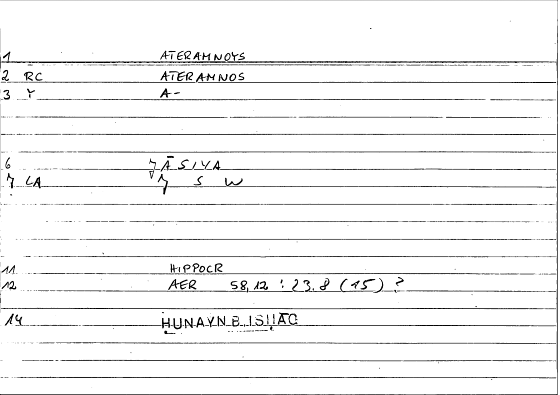 1 ATERAMNOYS
2 RC ATERAMNOS
3 Y A-
6 ĀSIYA
7 LA S W
11 HIPPOCR
12 AER 58,12 : 23.8 (15) ?
14 ḤUNAYN B. ISḤĀQ